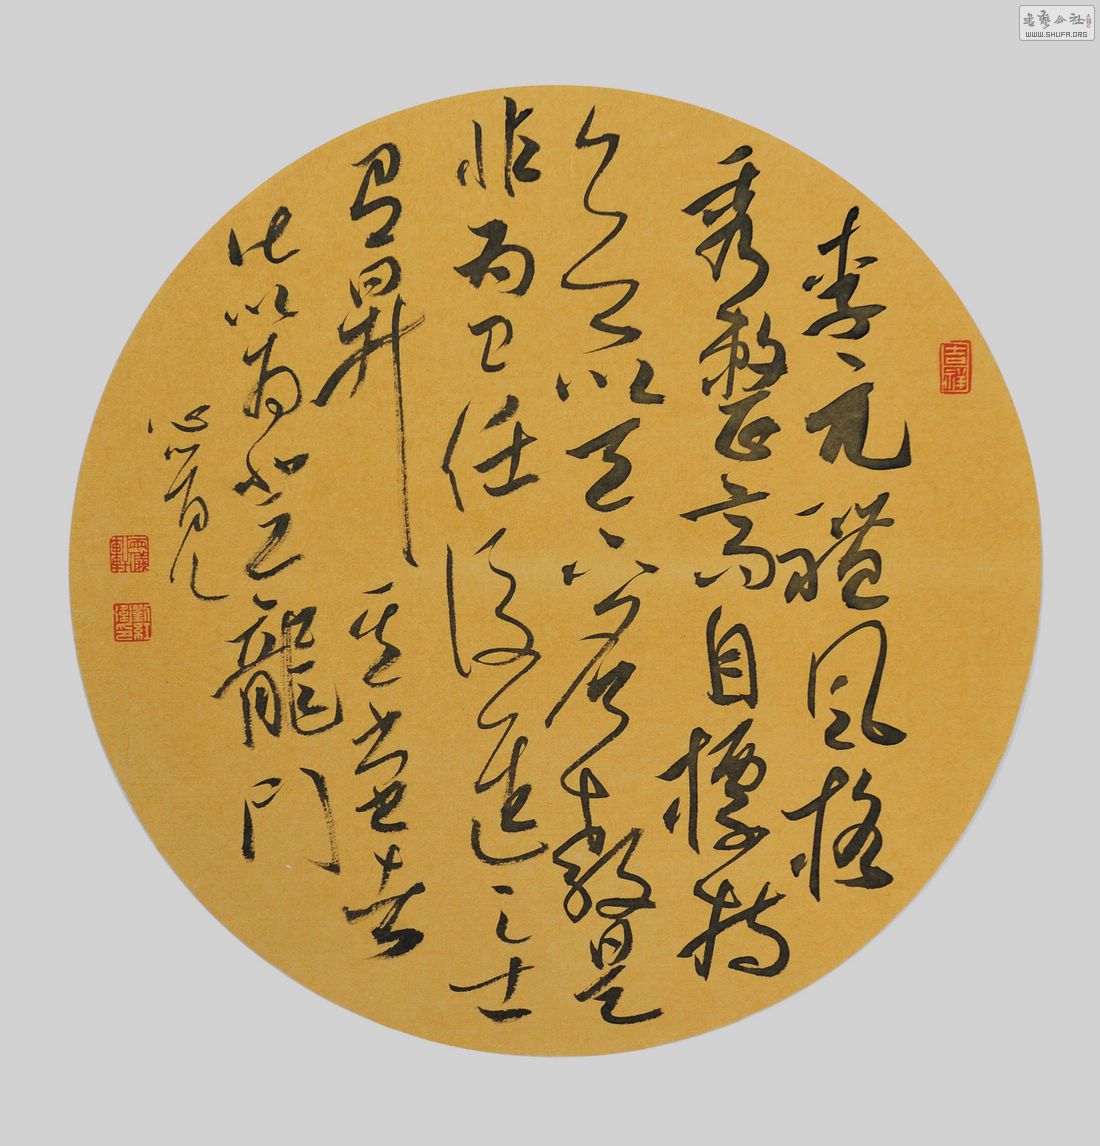 書藝公社
WWW.SHUFA.ORG
李元禮風格
秀整高自標持
欲以天下名教是
非為己任後進之士
有昇其堂者
皆以為登龍門
吉祥